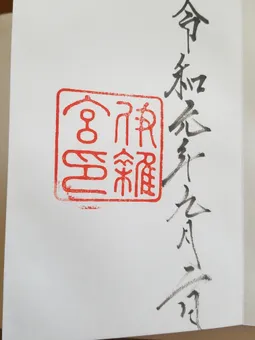 令和元年九月二日
伊雜
宮印